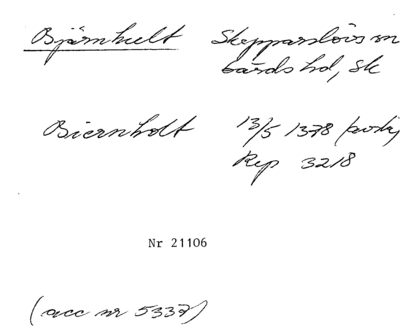 Björnhult Skepparslövs sn
Gärds hd, Sk
Biernholt 13/5 1378 (avskr)
Rep 3218
Nr 21106
(acc nr 5337)